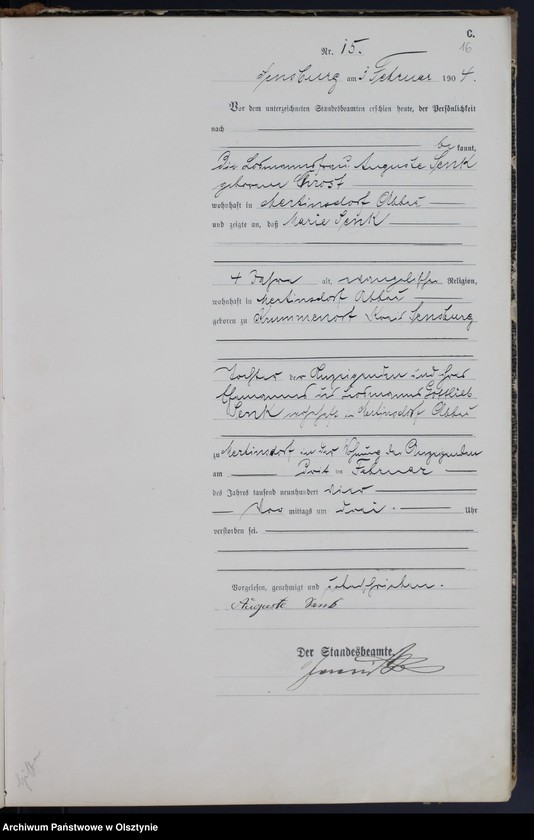 C.
16
Nr. 15.
Sensburg am 3 Februar 1904.
Vor dem unterzeichneten Standesbeamten erschien heute, der Persönlichkeit
nach
be kannt,
die Losmannsfrau Auguste Senk
geborene
wohnhaft in Mertinsdorf Abbau
und zeigte an, daß Marie Senk
4 Jahre alt, evangelischer Religion,
wohnhaft in Mertinsdorf Abbau
geboren zu Krummenort Kreis Sensburg
Tochter der Anzeigenden und ihres
Ehemannes des Losmanns Gottlieb
Senk wohnhaft in Mertinsdorf Abbau
zu Mertinsdorf in der Wohnung der Anzeigenden
am Februar
des Jahres tausend neunhundert vier
Vor mittags um drei Uhr
verstorben sei.
Vorgelesen, genehmigt und unterschrieben.
Auguste Senk
Der Standesbeamte.
Archiwum Państwowe w Olsztynie